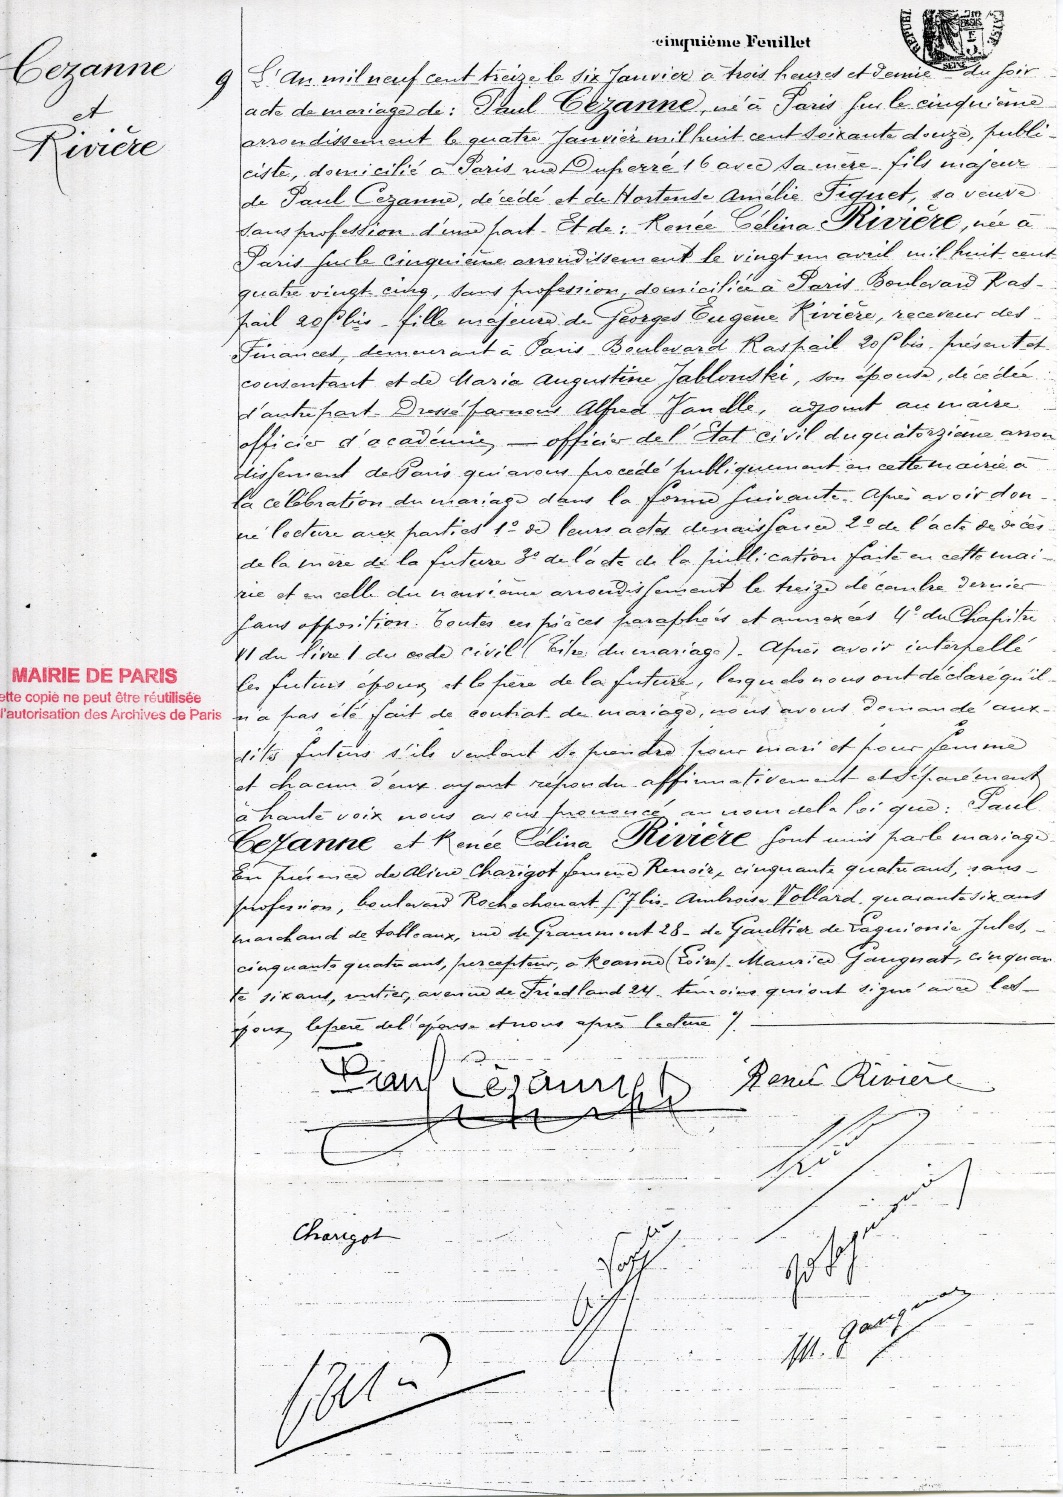 cinquième Feuillet
Cezanne
et
Rivière
9
L'An mil neuf cent treize le six Janvier à trois heures et demie du soir
acte de mariage de : Paul Cezanne, né à Paris sur le cinquième
arrondissement le quatre Janvier mil huit cent soixante douze, publi-
ciste, domicilié à Paris rue Duperré 16 avec sa mère - fils majeur
de Paul Cezanne, décédé et de Hortense Amélie Fiquet, sa veuve
sans profession d'une part - Et de : Renée Célina Rivière, née à
Paris sur le cinquième arrondissement le vingt un avril mil huit cent
quatre vingt cinq, sans profession, domiciliée à Paris Boulevard Ras-
pail 205 bis - fille majeure de Georges Eugène Rivière, receveur des
Finances, demeurant à Paris Boulevard Raspail 205 bis - présent et
consentant et de Maria Augustine Jablonski, son épouse, décédée
d'autre part - Dressé par nous Alfred , adjoint au maire
officier d'académie, — officier de l'Etat civil du quatorzième arron
dissement de Paris qui avons procédé publiquement en cette mairie à
la célébration du mariage dans la forme suivante - Après avoir don-
né lecture aux parties 1° de leurs actes de naissance 2° de l'acte de décès
de la mère de la future 3° de l'acte de la publication faite en cette mai-
rie et en celle du neuvième arrondissement le treize décembre dernier
sans opposition. Toutes ces pièces paraphées et annexées 4° du Chapitre
VI du livre 1 du code civil (Titre du mariage) - Après avoir interpellé
les futurs époux, et le père de la future, lesquels nous ont déclaré qu'il
n'a pas été fait de contrat de mariage, nous avons demandé aux-
dits futurs s'ils veulent se prendre pour mari et pour femme
et chacun d'eux ayant répondu affirmativement et séparément
à haute voix nous avons prononcé au nom de la loi que : Paul
Cezanne et Renée Célina Rivière sont unis par le mariage
En présence de Aline Charigot femme Renoir, cinquante quatre ans, sans
profession, boulevard Rochechouart 57 bis - Ambroise Vollard, quarante six ans
marchand de tableaux, rue de Grammont 28 - de Gaultier de Laguionie Jules, -
cinquante quatre ans, percepteur, à Roanne (Loire) - Maurice Gangnat, cinquan
te six ans, rentier, avenue de Friedland 24 - témoins qui ont signé avec les
époux, le père de l'épouse et nous après lecture /. —
Paul Cézanne Renée Rivière
Charigot
M. Gangnat
MAIRIE DE PARIS
ette copie ne peut être réutilisée
l'autorisation des Archives de Paris